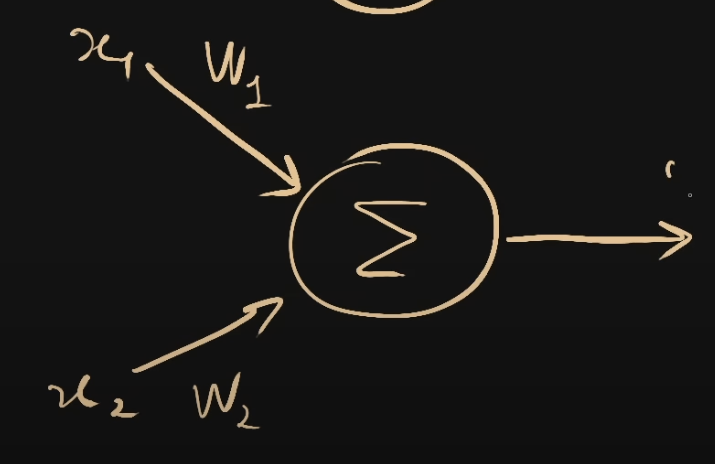 x₁ W₁
Σ
x₂ W₂